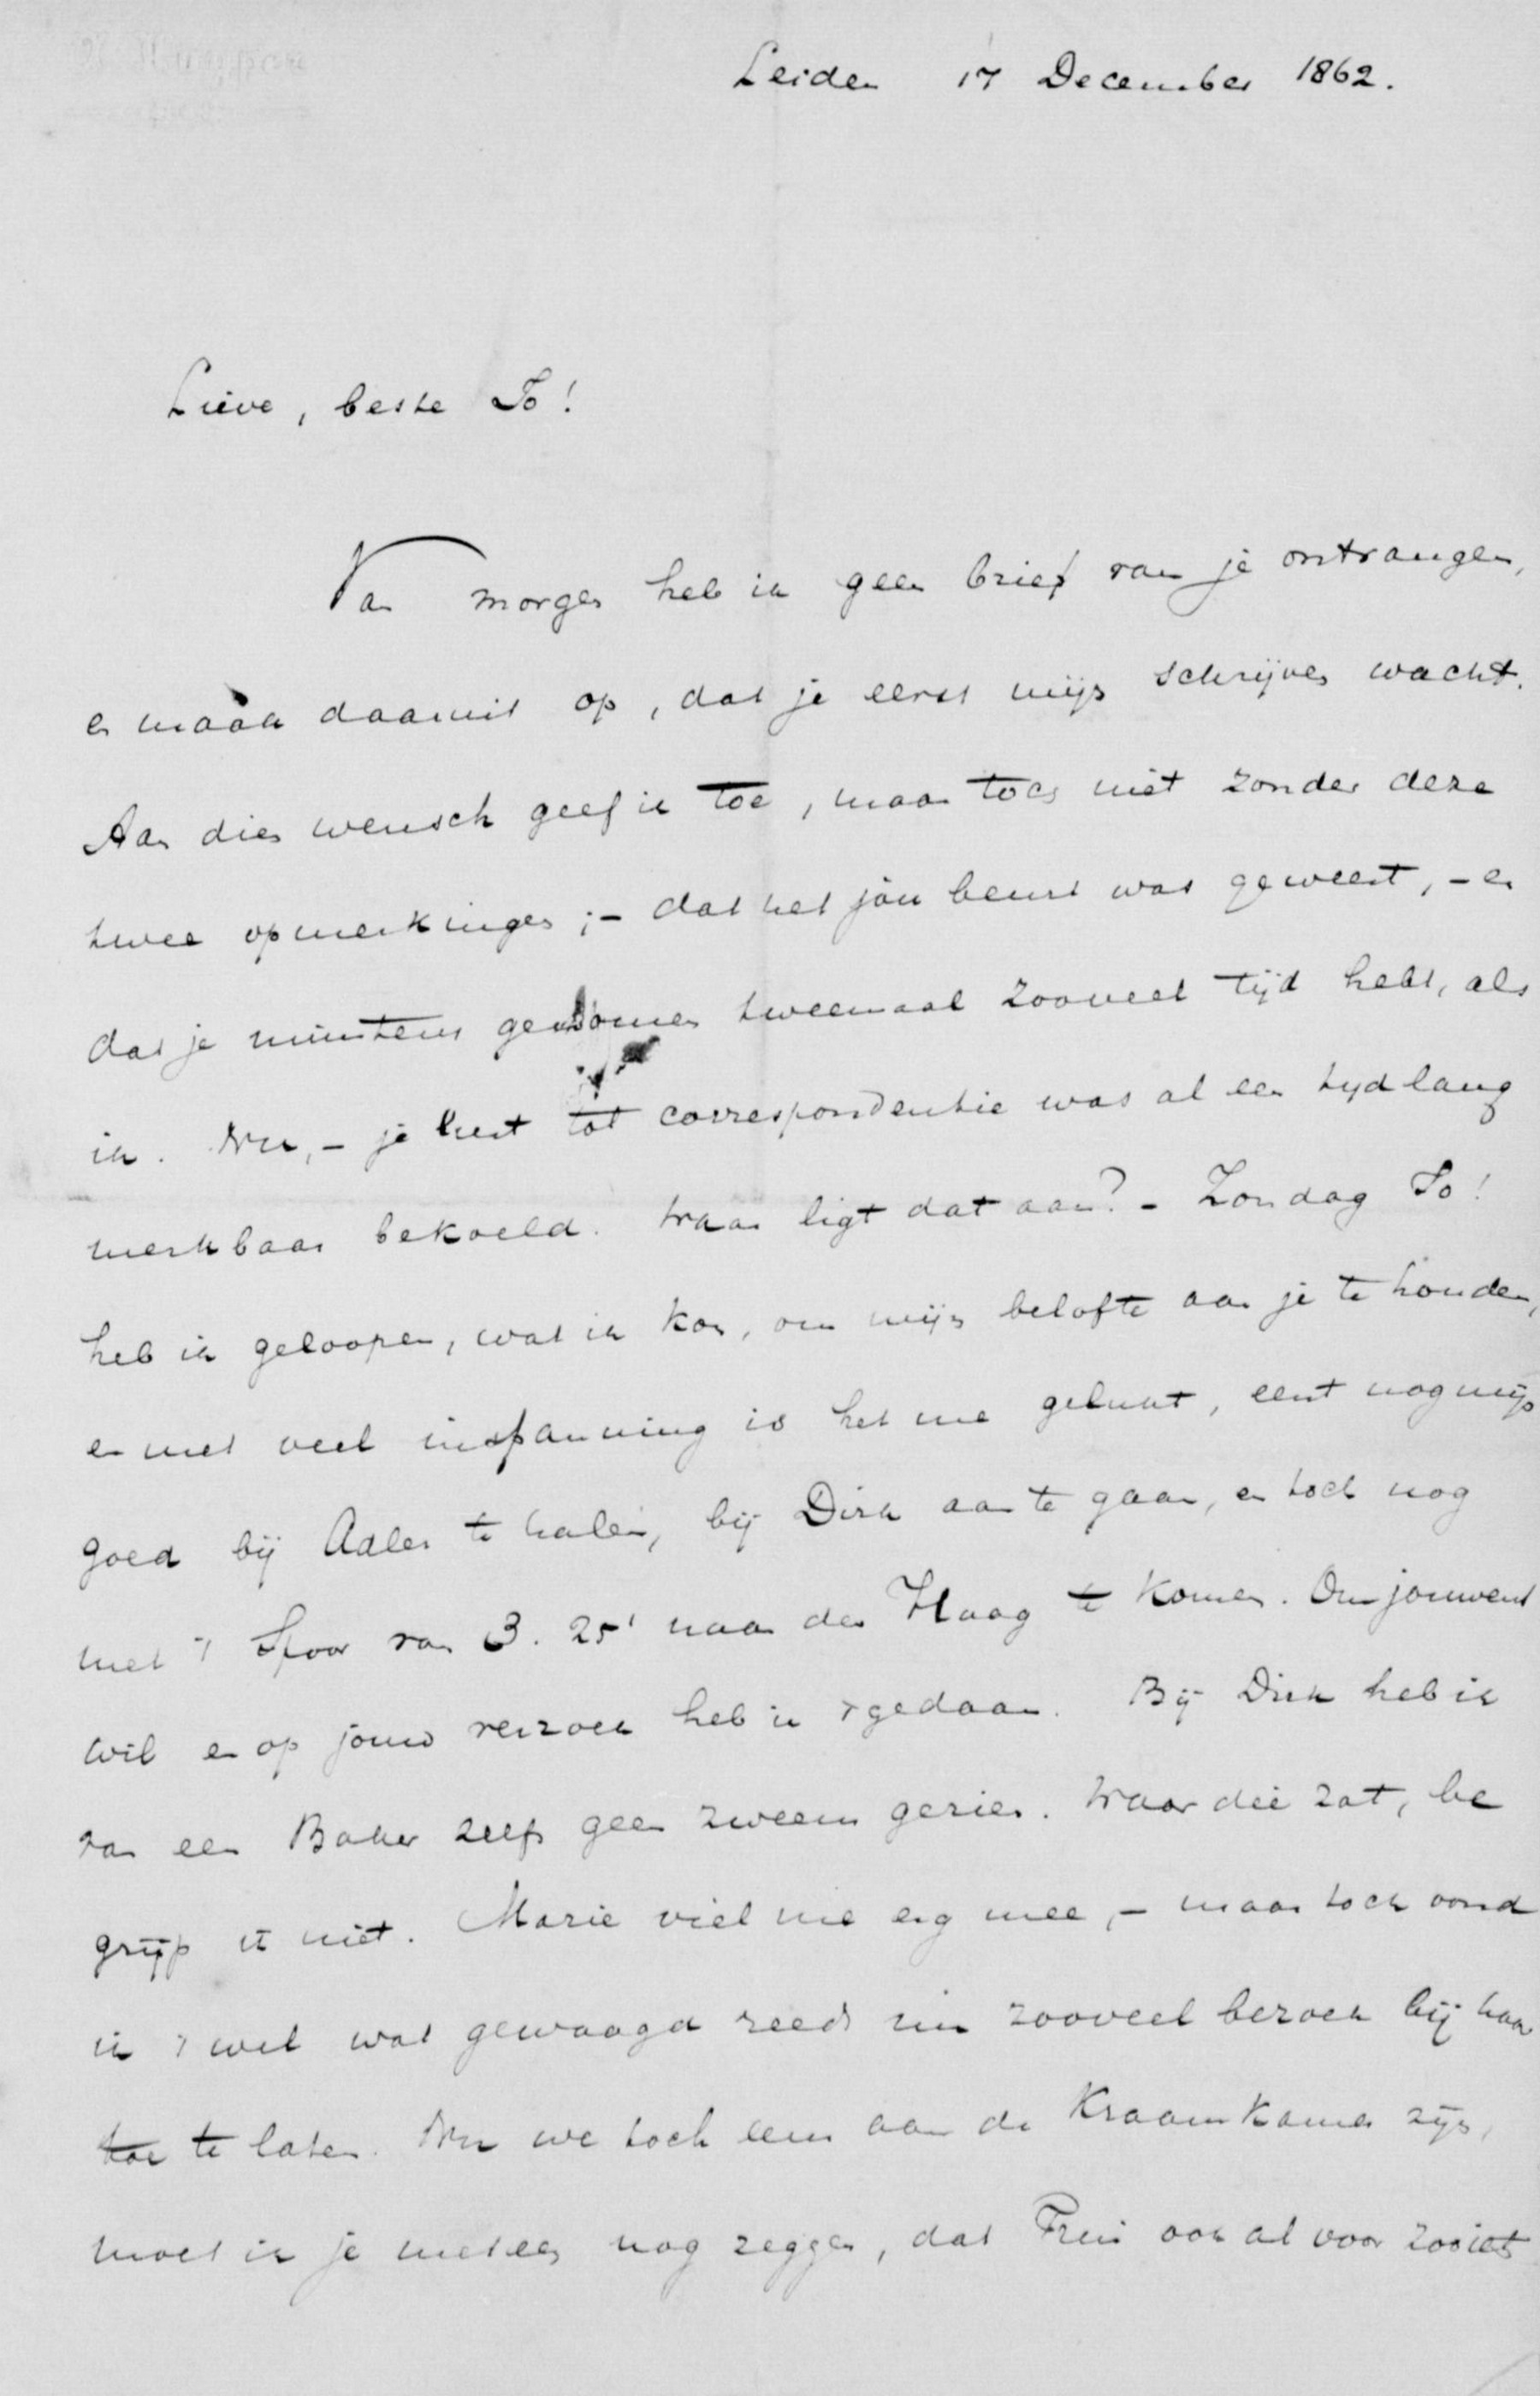 Leiden 17 December 1862.
Lieve, beste Jo!
Van morgen heb ik geen brief van je ontvangen,
en maak daaruit op, dat je eerst mijn schrijven wacht.
Aan dien wensch geef ik toe, maar toch niet zonder deze
twee opmerkingen; - dat het jòu beurt was geweest, - en
dat je minstens genomen tweemaal zooveel tijd hebt, als
ik. Nu, - je lust tot correspondentie was al een tyd lang
merkbaar bekoeld. Waar ligt dat aan? - Zondag Jo!
heb ik geloopen, wat ik kon, om mijn belofte aan je te houden,
en met veel inspanning is het me gelukt, eerst nog mijn
goed bij Adler te halen, bij Dirk aan te gaan, en toch nog
met 't Spoor van 3.25' naar den Haag te komen. Om jouwent
wil en op jouw verzoek heb ik 't gedaan. Bij Dirk heb ik
van een Baker zelfs geen zweem gezien. Waar die zat, be
grijp ik niet. Marie viel me erg mee, - maar toch vond
ik 't wel wat gewaagd reeds nu zooveel bezoek bij haar
toe te laten. Nu we toch eens aan de Kraamkamer zijn,
moet ik je meteen nog zeggen, dat Fruin ook al voor zooiets